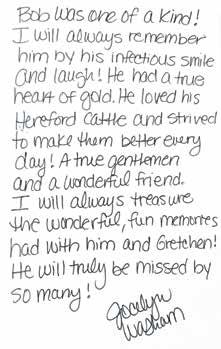 Bob was one of a kind!
I will always remember
him by his infectious smile
and laugh! He had a true
heart of gold. He loved his
Hereford Cattle and strived
to make them better every
day! A true gentlemen
and a wonderful friend.
I will always treasure
the wonderful, fun memories
had with him and Gretchen!
He will truly be missed by
so many!
Jocelyn
Washam